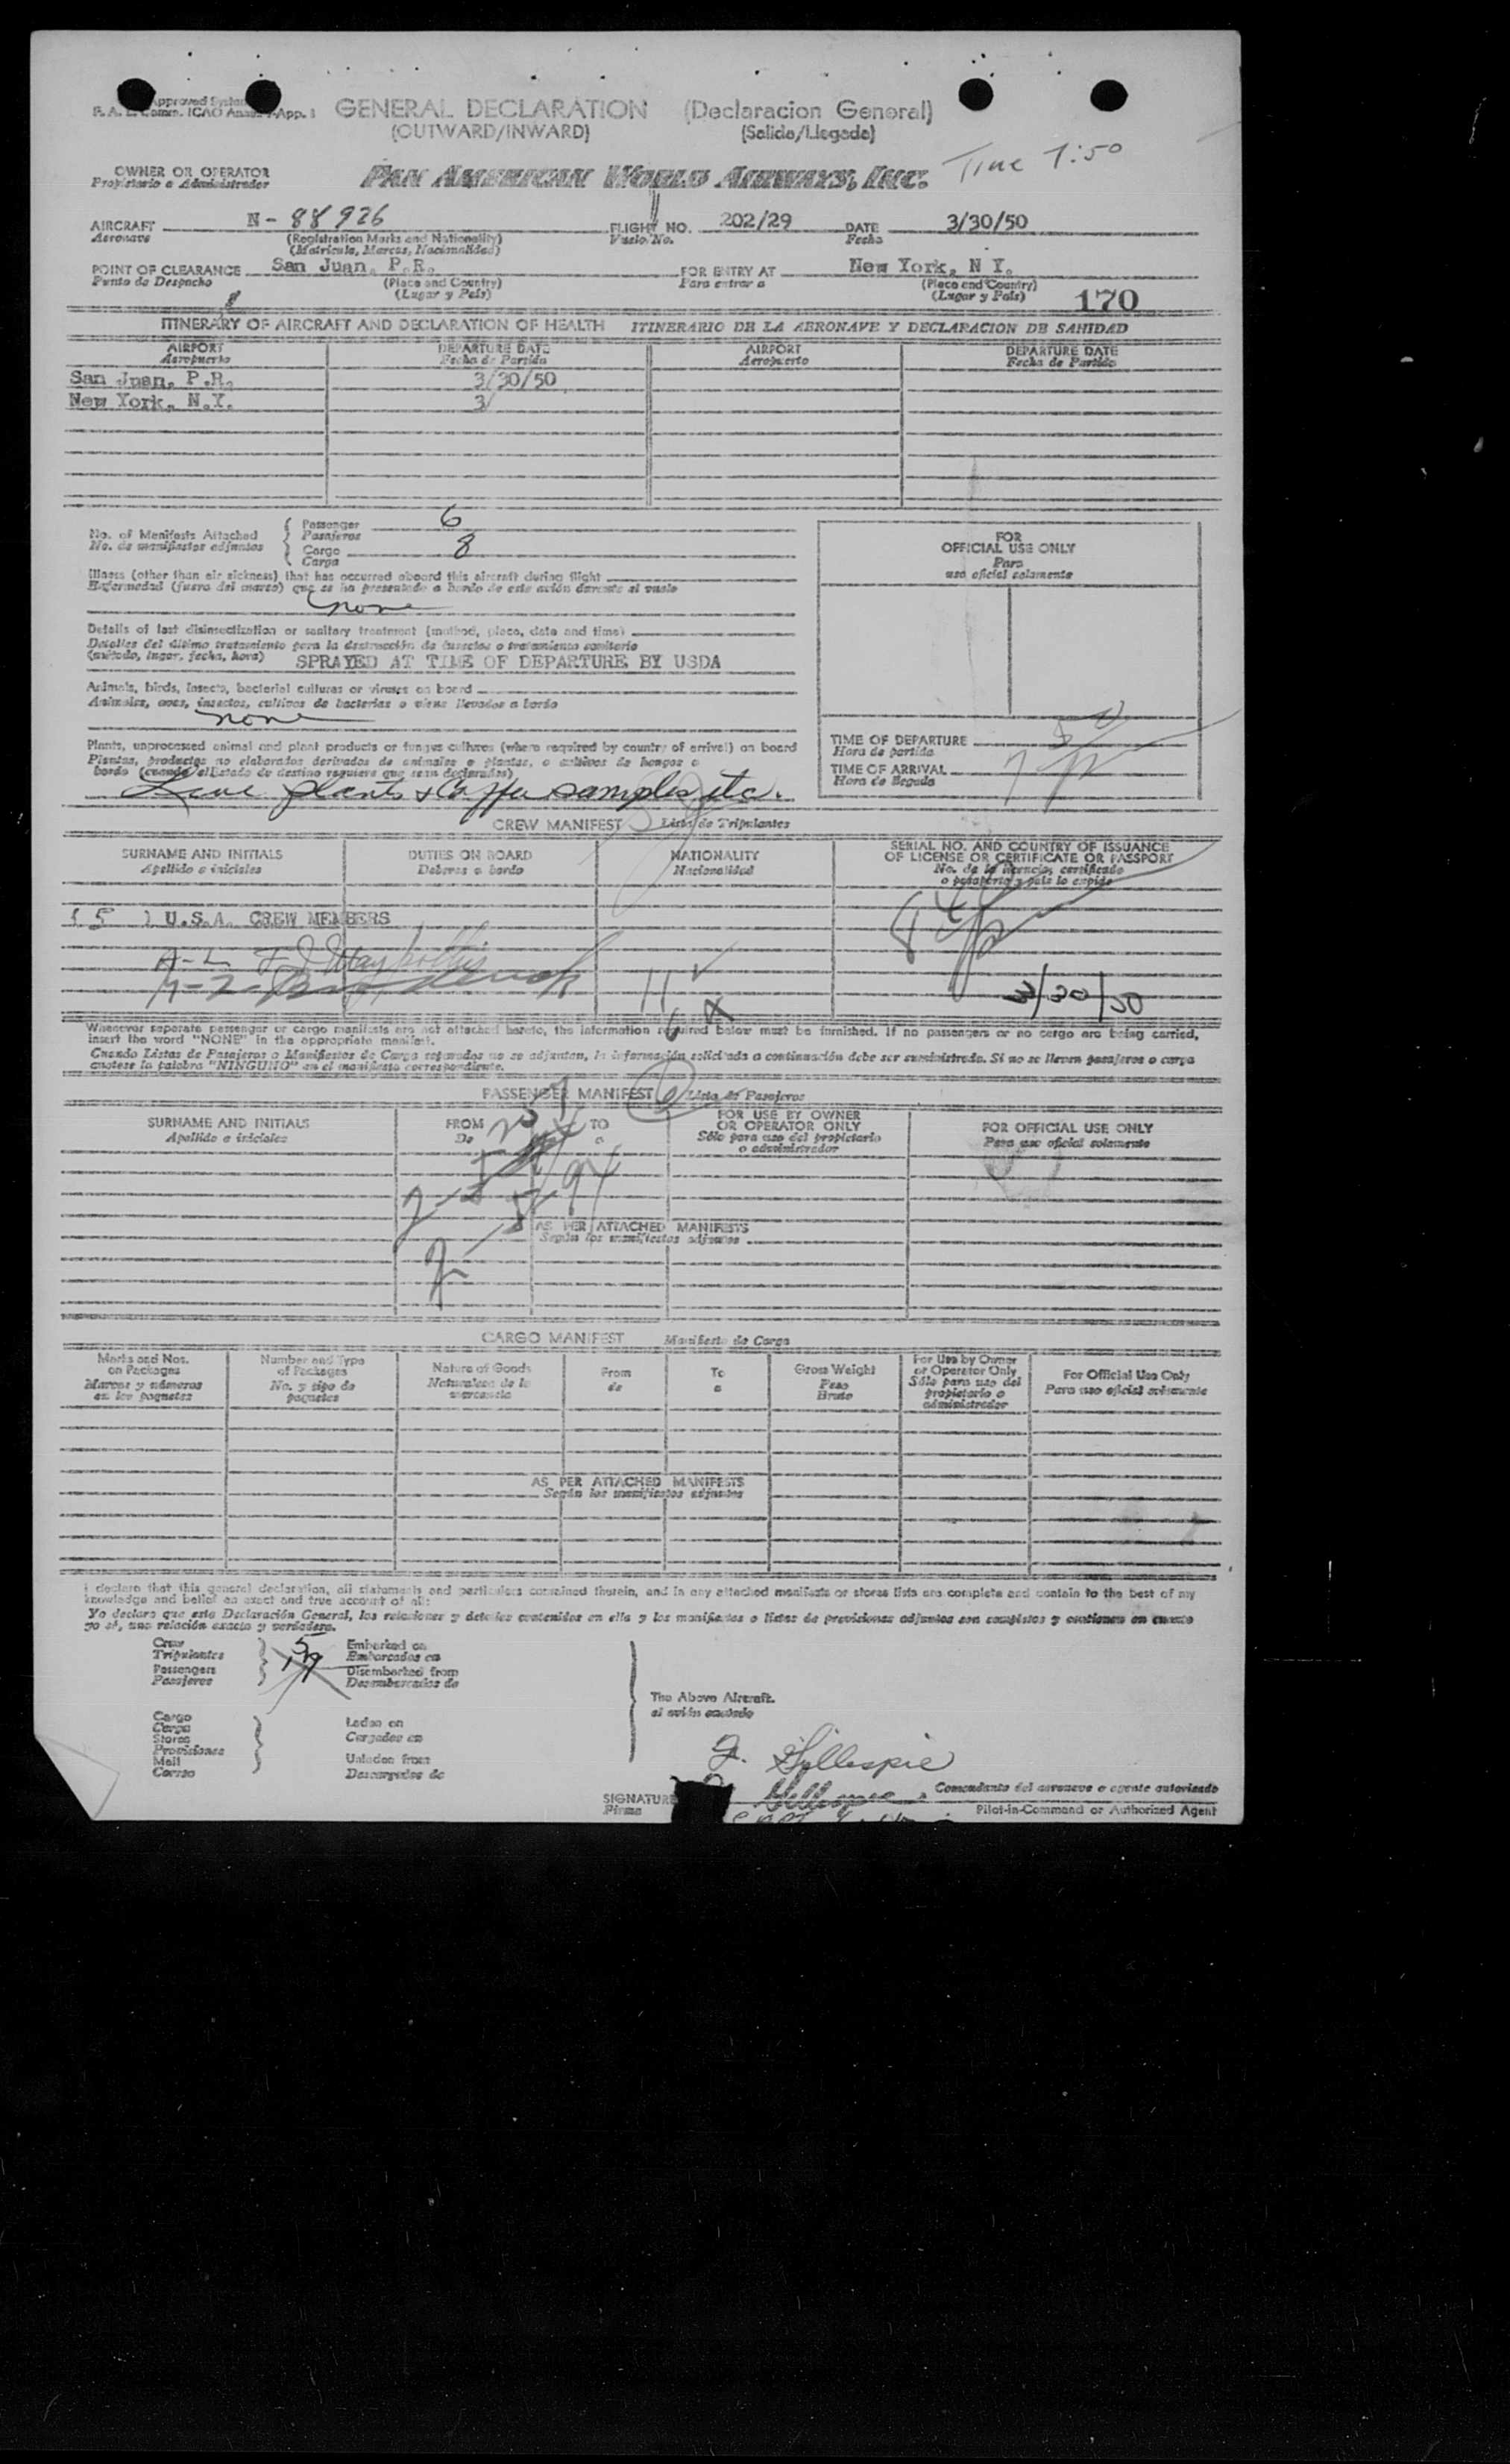 Approved System
F. A. L. Comm. ICAO Annex 9-App. 1
GENERAL DECLARATION (Declaracion General)
(OUTWARD/INWARD) (Salida/Llegada)
Time 7:50
OWNER OR OPERATOR
Propietario o Administrador
PAN AMERICAN WORLD AIRWAYS, INC.
AIRCRAFT N- 88926 FLIGHT NO. 202/29 DATE 3/30/50
Aeronave (Registration Marks and Nationality) Vuelo No. Fecha
(Matricula, Marcas, Nacionalidad)
POINT OF CLEARANCE San Juan, P.R. FOR ENTRY AT New York, N Y.
Punto de Despacho (Place and Country) Para entrar a (Place and Country)
(Lugar y País) (Lugar y País) 170
ITINERARY OF AIRCRAFT AND DECLARATION OF HEALTH ITINERARIO DE LA AERONAVE Y DECLARACION DE SANIDAD
AIRPORT DEPARTURE DATE AIRPORT DEPARTURE DATE
Aeropuerto Fecha de Partida Aeropuerto Fecha de Partida
San Juan, P.R. 3/30/50
New York, N.Y. 3/
No. of Manifests Attached Passenger 6
No. de manifiestos adjuntos Pasajeros
Cargo 8
Carga
FOR
OFFICIAL USE ONLY
Para
uso oficial solamente
Illness (other than air sickness) that has occurred aboard this aircraft during flight
Enfermedad (fuera del mareo) que se ha presentado a bordo de este avión durante el vuelo
none
Details of last disinsectization or sanitary treatment (method, place, date and time)
Detalles del último tratamiento para la destrucción de insectos o tratamiento sanitario
(método, lugar, fecha, hora) SPRAYED AT TIME OF DEPARTURE BY USDA
Animals, birds, insects, bacterial cultures or viruses on board
Animales, aves, insectos, cultivos de bacterias o virus llevados a bordo
none
Plants, unprocessed animal and plant products or fungus cultures (where required by country of arrival) on board
Plantas, productos no elaborados derivados de animales o plantas, o cultivos de hongos a
bordo (cuando el Estado de destino requiera que sean declarados)
plants & samples etc.
TIME OF DEPARTURE
Hora de partida
TIME OF ARRIVAL
Hora de llegada
CREW MANIFEST Lista de Tripulantes
SURNAME AND INITIALS DUTIES ON BOARD NATIONALITY SERIAL NO. AND COUNTRY OF ISSUANCE
OF LICENSE OR CERTIFICATE OR PASSPORT
Apellido e iniciales Deberes a bordo Nacionalidad No. de la licencia, certificado
o pasaporte y país lo expide
( 5 ) U.S.A. CREW MEMBERS
3/30/50
Whenever separate passenger or cargo manifests are not attached hereto, the information required below must be furnished. If no passengers or no cargo are being carried,
insert the word "NONE" in the appropriate manifest.
Cuando Listas de Pasajeros o Manifiestos de Carga separados no se adjuntan, la información solicitada a continuación debe ser suministrada. Si no se llevan pasajeros o carga
anótese la palabra "NINGUNO" en el manifiesto correspondiente.
PASSENGER MANIFEST Lista de Pasajeros
SURNAME AND INITIALS FROM TO FOR USE BY OWNER
OR OPERATOR ONLY FOR OFFICIAL USE ONLY
Apellido e iniciales De a Sólo para uso del propietario
o administrador Para uso oficial solamente
AS PER ATTACHED MANIFESTS
Según los manifiestos adjuntos
CARGO MANIFEST Manifiesto de Carga
Marks and Nos.
on Packages
Marcas y números
en los paquetes
Number and Type
of Packages
No. y tipo de
paquetes
Nature of Goods
Naturaleza de la
mercancía
From
de
To
a
Gross Weight
Peso
Bruto
For Use by Owner
or Operator Only
Sólo para uso del
propietario o
administrador
For Official Use Only
Para uso oficial solamente
AS PER ATTACHED MANIFESTS
Según los manifiestos adjuntos
I declare that this general declaration, all statements and particulars contained therein, and in any attached manifests or stores lists are complete and contain to the best of my
knowledge and belief an exact and true account of all:
Yo declaro que esta Declaración General, las relaciones y detalles contenidos en ella y los manifiestos o listas de provisiones adjuntos son completos y contienen en cuanto
yo sé, una relación exacta y verdadera.
Crew 5 Embarked on
Tripulantes Embarcados en
Passengers Disembarked from
Pasajeros Desembarcados de
The Above Aircraft.
el avión anotado
Cargo
Carga Laden on
Stores Cargados en
Provisiones
Mail Unladen from
Correo Descargados de
J. Gillespie
Comandante del aeronave o agente autorizado
SIGNATURE
Firma Pilot-in-Command or Authorized Agent